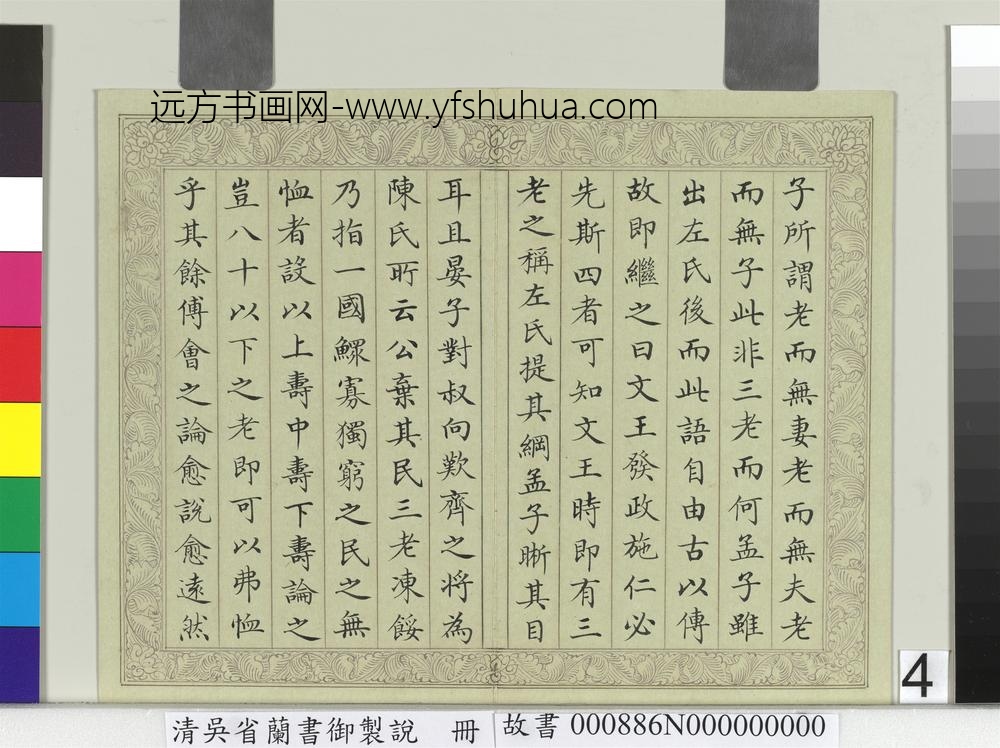 远方书画网-www.yfshuhua.com
子所謂老而無妻老而無夫老
而無子此非三老而何孟子雖
出左氏後而此語自由古以傳
故即繼之曰文王發政施仁必
先斯四者可知文王時即有三
老之稱左氏提其綱孟子晰其目
耳且晏子對叔向歎齊之將為
陳氏所云公棄其民三老凍餒
乃指一國鰥寡獨窮之民之無
恤者設以上壽中壽下壽論之
豈八十以下之老即可以弗恤
乎其餘傅會之論愈說愈遠然
4
清吳省蘭書御製說 冊
故書 000886N000000000